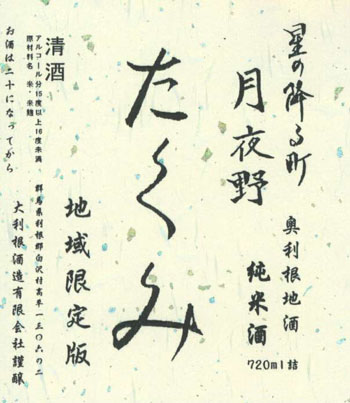 星の降る町
月夜野
奥利根地酒
純米酒
720ml詰
たくみ
地域限定版
群馬県利根郡白沢村高平一三〇六の二
大利根酒造有限会社謹醸
清酒
アルコール分15度以上16度未満
原材料名 米・米麹
お酒は二十になってから